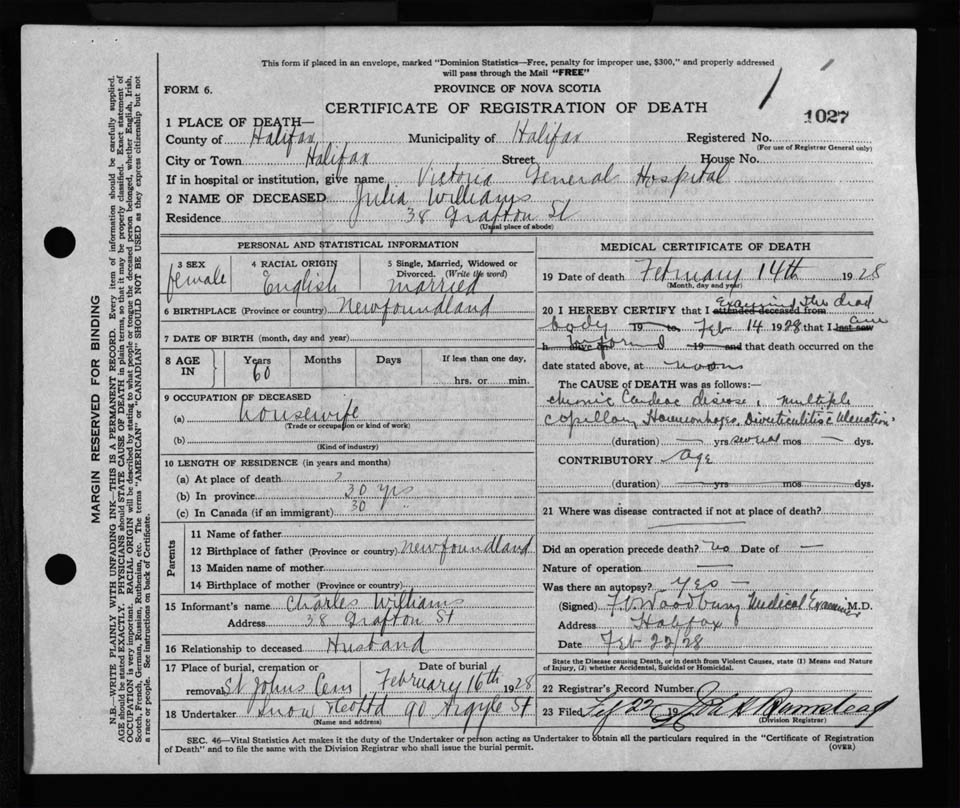 This form if placed in an envelope, marked "Dominion Statistics—Free, penalty for improper use, $300," and properly addressed
will pass through the Mail "FREE"
FORM 6.
PROVINCE OF NOVA SCOTIA
CERTIFICATE OF REGISTRATION OF DEATH
1027
1 PLACE OF DEATH—
County of Halifax Municipality of Halifax Registered No.
(For use of Registrar General only)
City or Town Halifax Street House No.
If in hospital or institution, give name Victoria General Hospital
2 NAME OF DECEASED Julia Williams
Residence 38 Grafton St
(Usual place of abode)
PERSONAL AND STATISTICAL INFORMATION
3 SEX
female
4 RACIAL ORIGIN
English
5 Single, Married, Widowed or
Divorced. (Write the word)
married
6 BIRTHPLACE (Province or country) Newfoundland
7 DATE OF BIRTH (month, day and year)
8 AGE IN
Years Months Days If less than one day,
60
hrs. or min.
9 OCCUPATION OF DECEASED
(a) housewife
(Trade or occupation or kind of work)
(b)
(Kind of industry)
10 LENGTH OF RESIDENCE (in years and months)
(a) At place of death ?
(b) In province 30 yrs
(c) In Canada (if an immigrant) 30 "
Parents
11 Name of father
12 Birthplace of father (Province or country) Newfoundland
13 Maiden name of mother
14 Birthplace of mother (Province or country)
15 Informant's name Charles Williams
Address 38 Grafton St
16 Relationship to deceased Husband
17 Place of burial, cremation or Date of burial
removal St Johns Cem February 16th 1928
18 Undertaker Snow 90 Argyle St
(Name and address)
MEDICAL CERTIFICATE OF DEATH
19 Date of death February 14th 1928
(Month, day and year)
Examined the dead
20 I HEREBY CERTIFY that I attended deceased from
body 19 to Feb 14 1928 that I last saw am
h alive on informed 19 and that death occurred on the
date stated above, at noon
The CAUSE of DEATH was as follows:—
Chronic Cardiac disease, multiple
capillary Haemorrhages, Diverticulitis
(duration) — yrs several mos — dys.
CONTRIBUTORY Age
(duration) yrs mos dys.
21 Where was disease contracted if not at place of death?
Did an operation precede death? No Date of —
Nature of operation —
Was there an autopsy? Yes —
(Signed) F. V. Woodbury Medical Examiner M.D.
Address Halifax
Date Feb 22/28
State the Disease causing Death, or in death from Violent Causes, state (1) Means and Nature
of Injury, (2) whether Accidental, Suicidal or Homicidal.
22 Registrar's Record Number
23 Filed Feb 22 19
(Division Registrar)
SEC. 46—Vital Statistics Act makes it the duty of the Undertaker or person acting as Undertaker to obtain all the particulars required in the "Certificate of Registration
of Death" and to file the same with the Division Registrar who shall issue the burial permit.
(OVER)
MARGIN RESERVED FOR BINDING
N.B.—WRITE PLAINLY WITH UNFADING INK—THIS IS A PERMANENT RECORD. Every item of information should be carefully supplied.
AGE should be stated EXACTLY. PHYSICIANS should STATE CAUSE OF DEATH in plain terms, so that it may be properly classified. Exact statement of
OCCUPATION is very important. RACIAL ORIGIN will be described by stating to what people or tongue the deceased person belonged, whether English, Irish,
Scotch, French, German, Russian, Ruthenian, etc. The terms "AMERICAN" or "CANADIAN" SHOULD NOT BE USED as they express citizenship but not
a race or people. See instructions on back of Certificate.